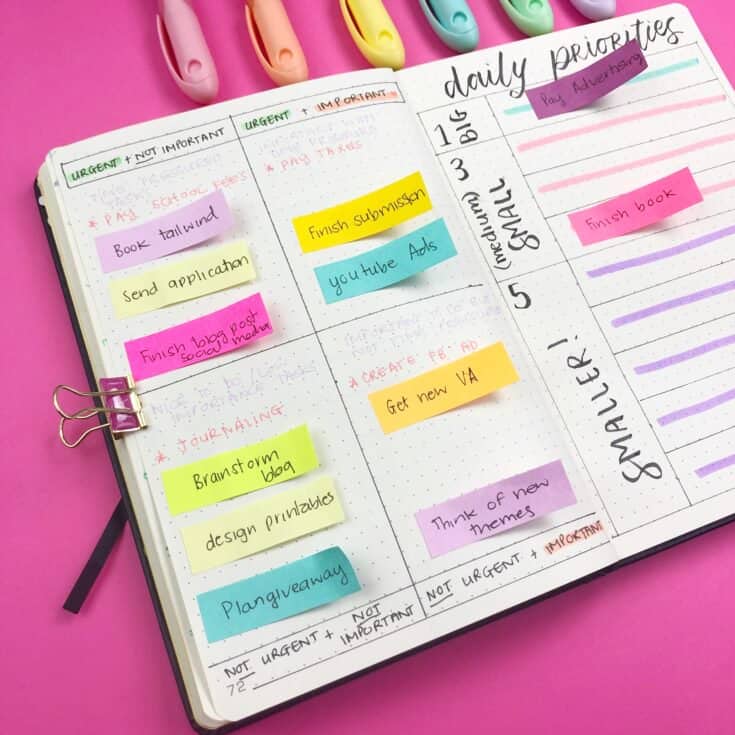 URGENT + NOT IMPORTANT
* PAY SCHOOL FEES
Book tailwind
Send application
Finish blog post
social media
URGENT + IMPORTANT
* PAY TAXES
Finish submission
youtube Ads
NICE TO DO / LOW
IMPORTANCE TASKS
* JOURNALING
Brainstorm
blog
design printables
Plan giveaway
NOT URGENT + NOT
IMPORTANT
72
IMPORTANT TO DO BUT
NOT TIME
* CREATE FB. AD
Get new VA
Think of new
themes
NOT URGENT + IMPORTANT
daily PRIORITIES
Pay Advertising
1 BIG
3 SMALL
(medium)
Finish book
5 SMALLER!